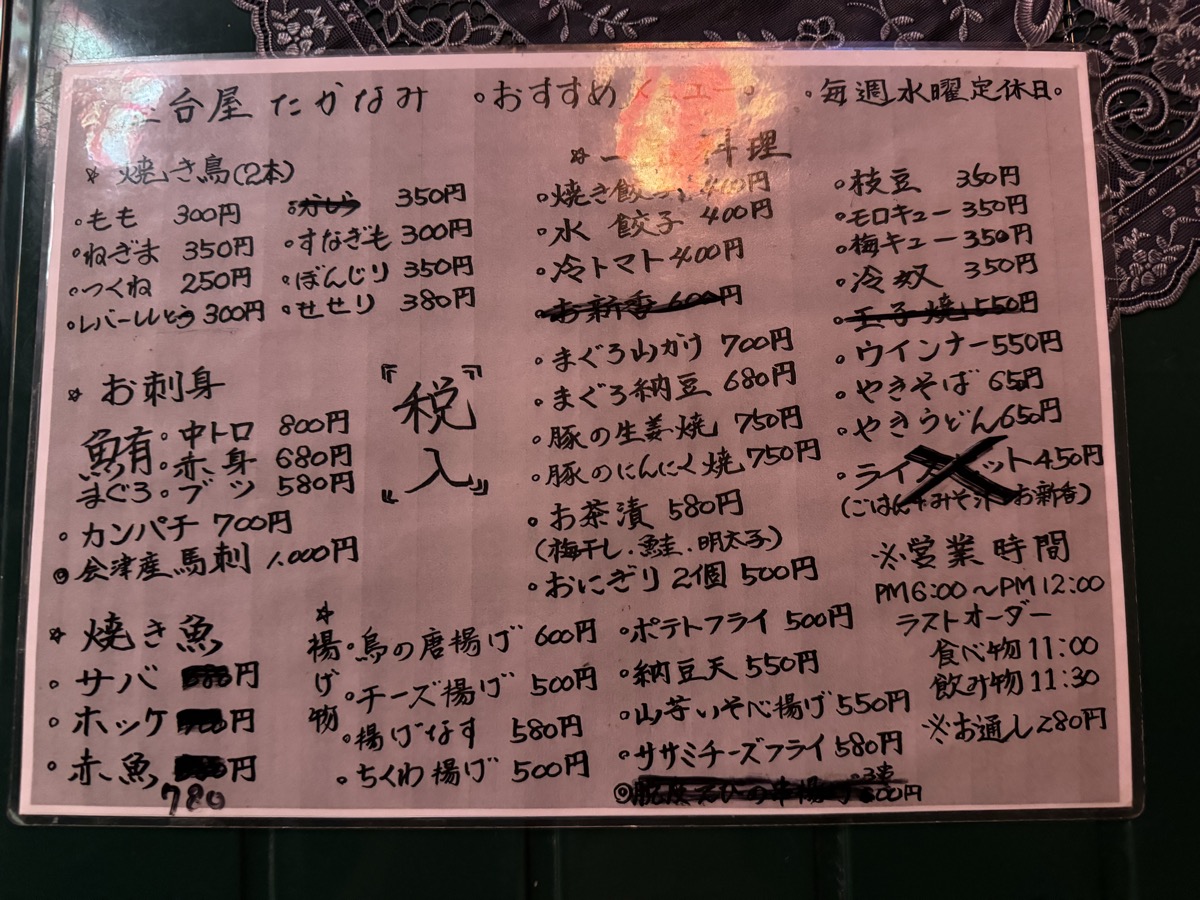 台屋 たかなみ
。おすすめメニュー。
。毎週水曜定休日。
☆ 焼き鳥(2本)
。もも 300円
。ねぎま 350円
。つくね 250円
。レバー 300円
350円
。すなぎも 300円
。ぼんじり 350円
。せせり 380円
☆ お刺身
鮪 。中トロ 800円
。赤身 680円
まぐろ 。ブツ 580円
。カンパチ 700円
◎会津産馬刺 1.000円
『税入』
☆ 焼き魚
。サバ 円
。ホッケ 円
。赤魚 円
780
☆ 揚げ物
。鳥の唐揚げ 600円
。チーズ揚げ 500円
。揚げなす 580円
。ちくわ揚げ 500円
。ポテトフライ 500円
。納豆天 550円
。山芋いそべ揚げ 550円
。ササミチーズフライ 580円
☆一 料理
。焼き餃子 400円
。水 餃子 400円
。冷トマト 400円
。お新香 600円
。まぐろ山かけ 700円
。まぐろ納豆 680円
。豚の生姜焼 750円
。豚のにんにく焼 750円
。お茶漬 580円
(梅干し.鮭.明太子)
。おにぎり 2個 500円
。枝豆 350円
。モロキュー 350円
。梅キュー 350円
。冷奴 350円
。玉子焼 550円
。ウインナー 550円
。やきそば 650円
。やきうどん 650円
。ライスセット 450円
(ごはん+みそ汁 お新香)
※営業時間
PM6:00〜PM12:00
ラストオーダー
食べ物 11:00
飲み物 11:30
※お通し 280円